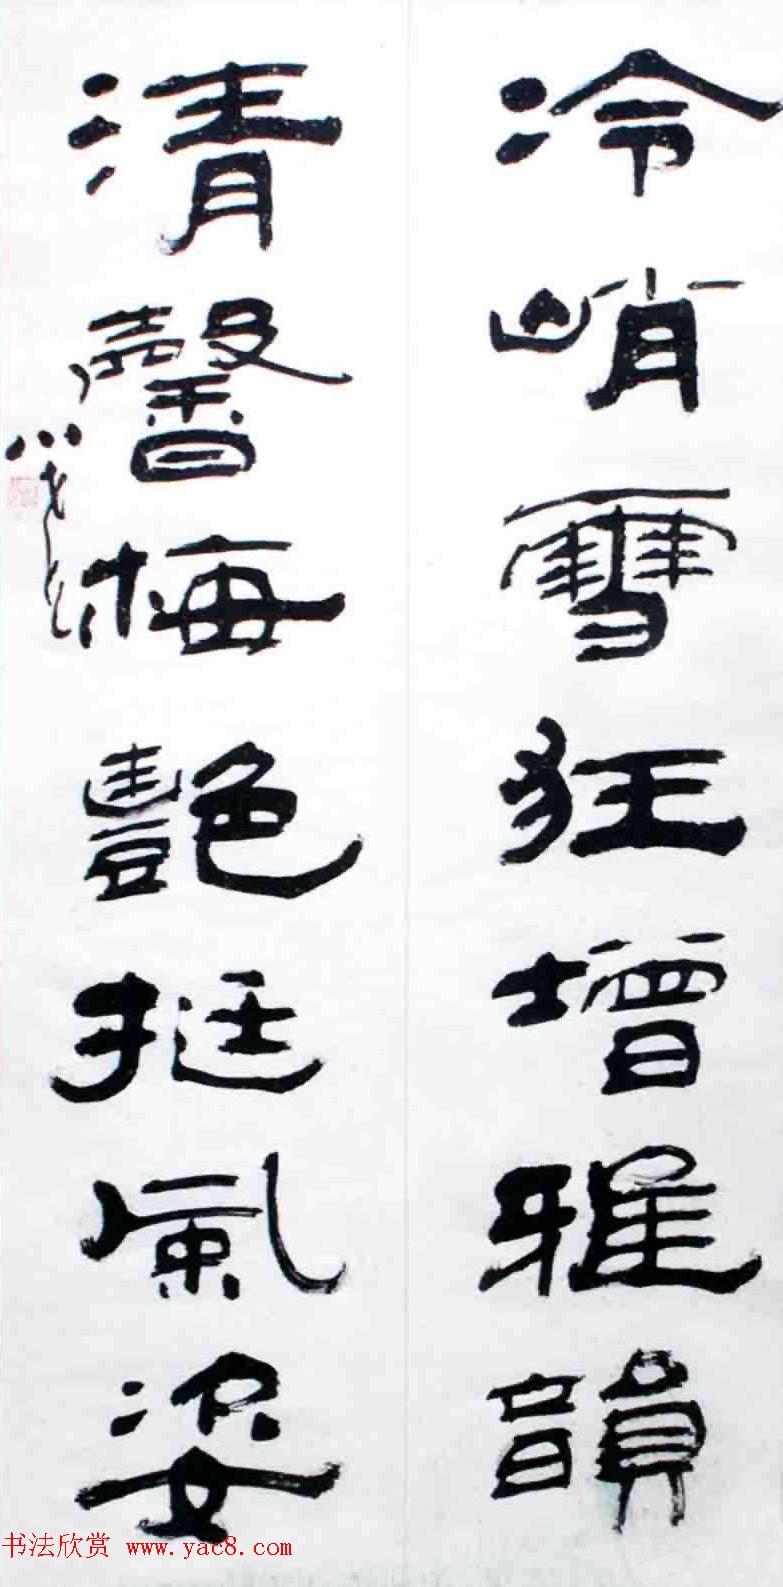 冷峭雪狂增雅韻
清馨梅艷挺風姿
书法欣赏 www.yac8.com